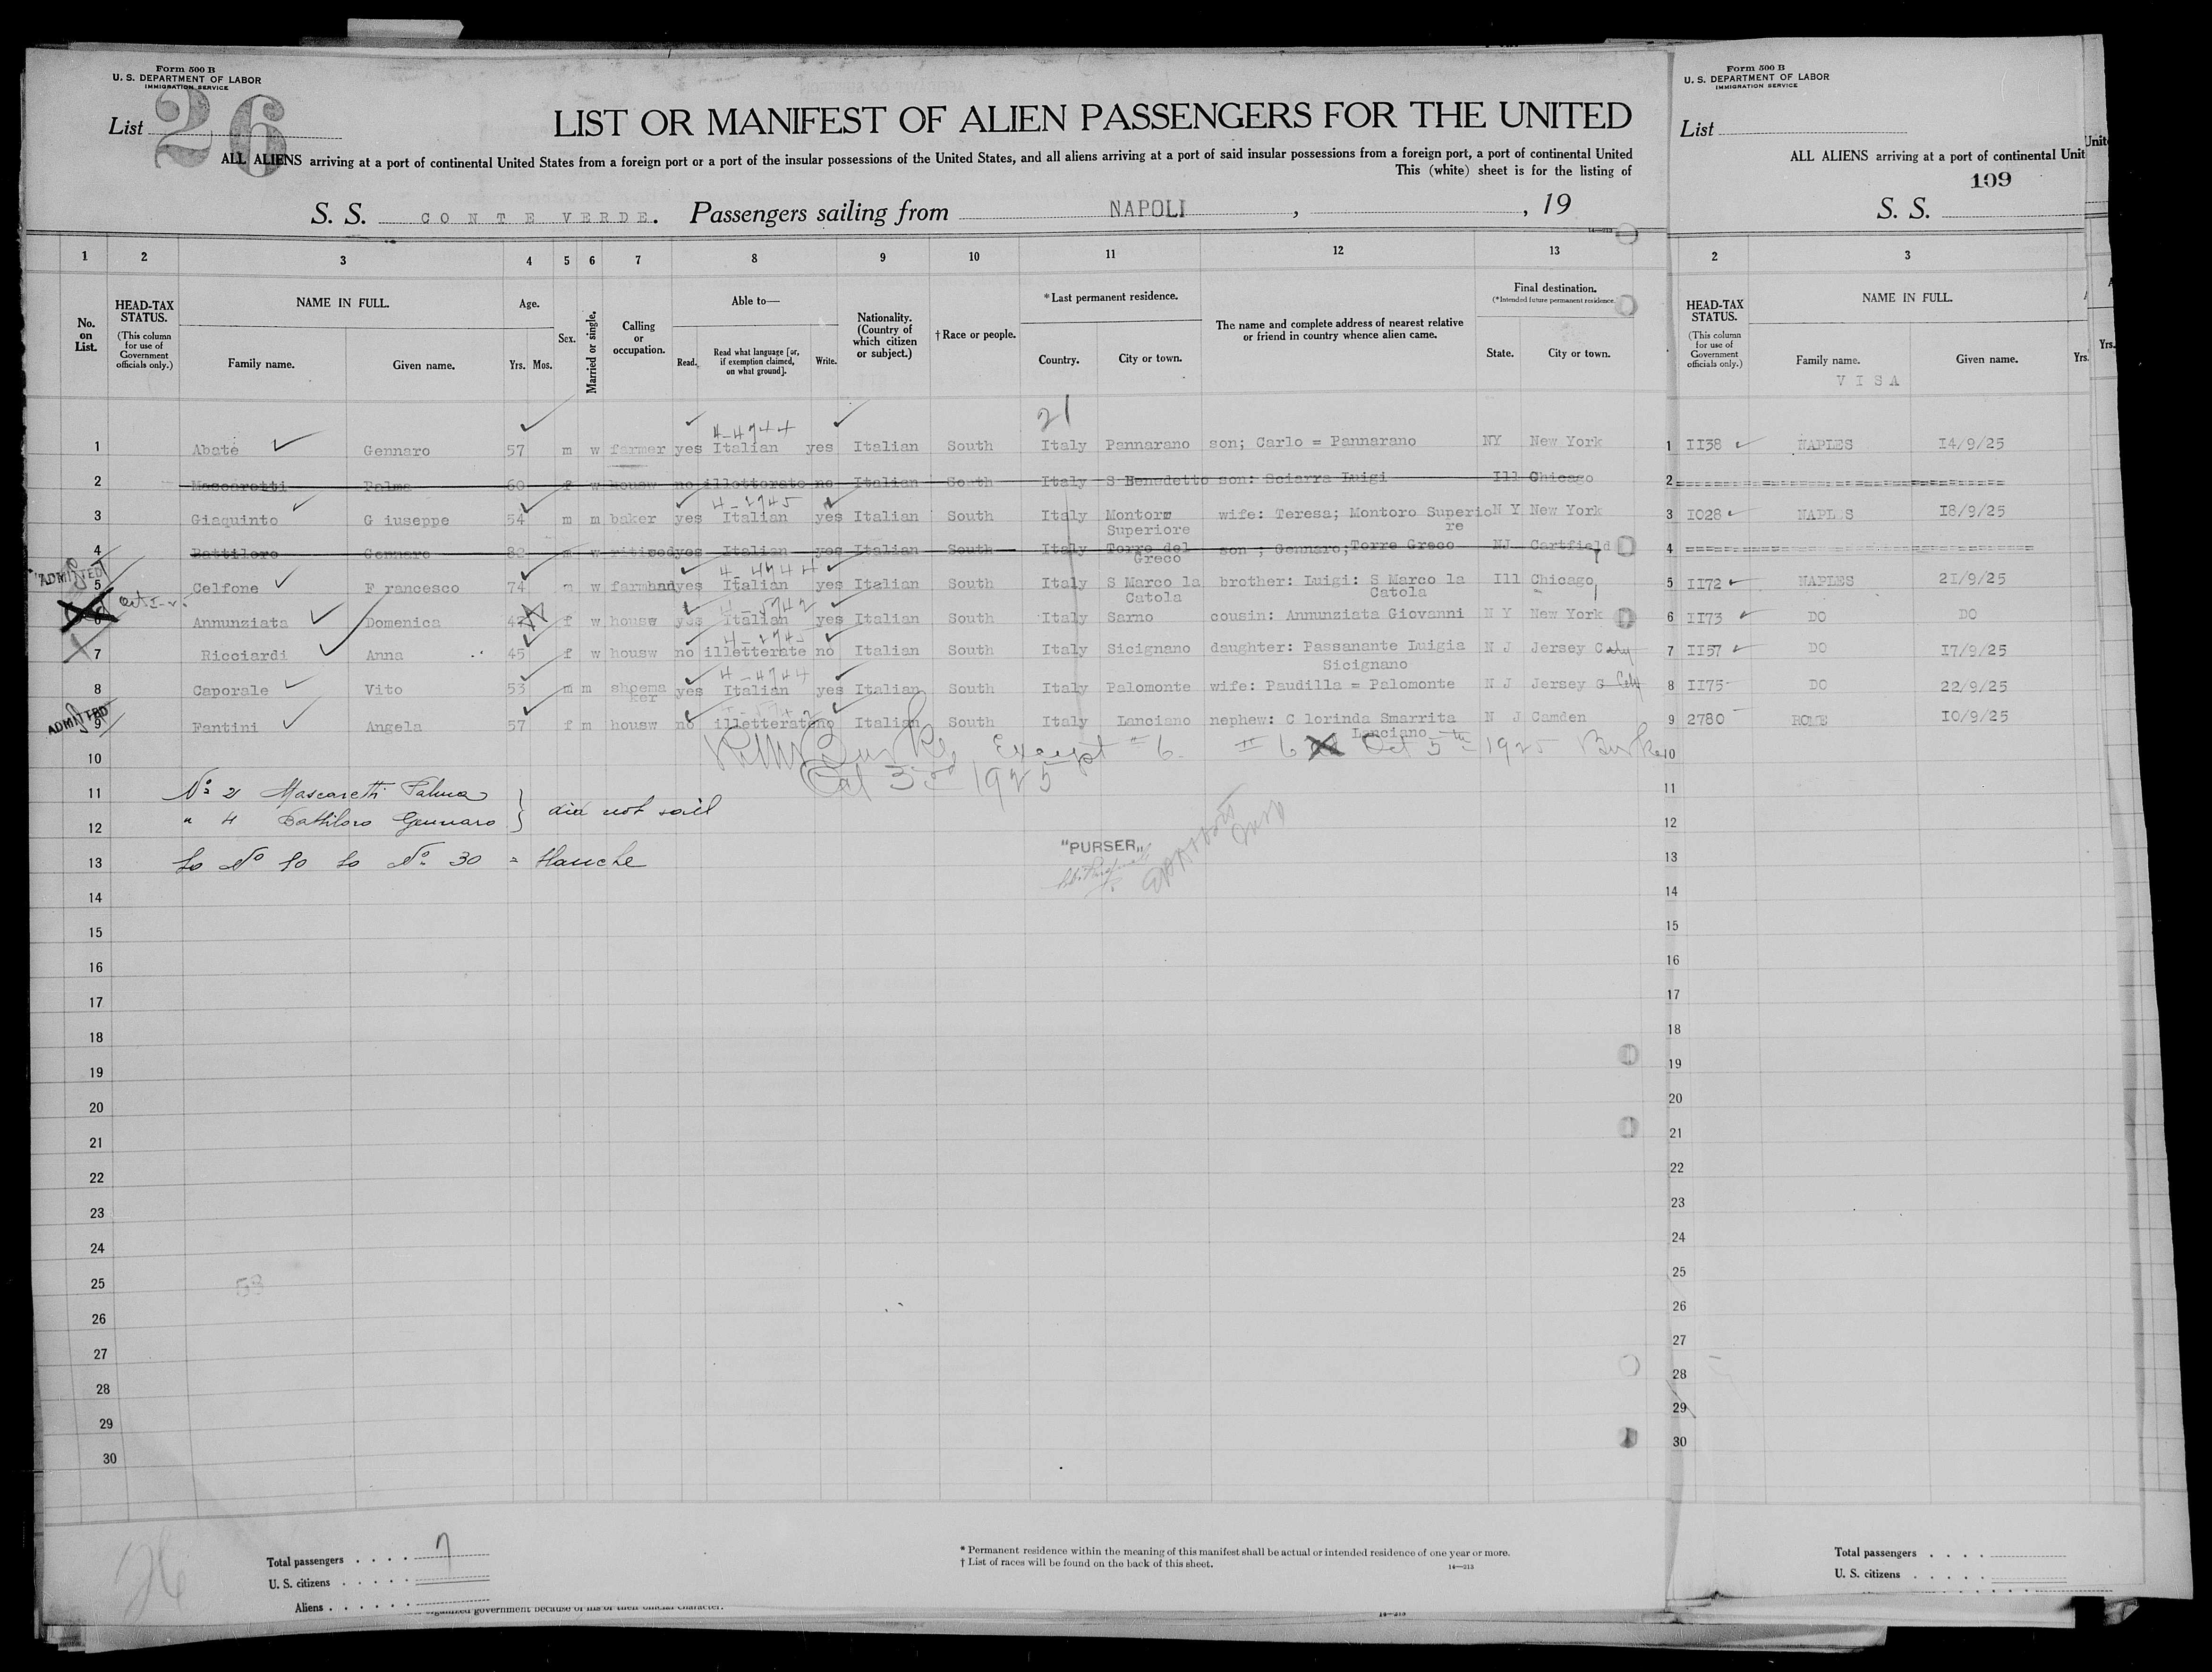 Form 500 B
U. S. DEPARTMENT OF LABOR
IMMIGRATION SERVICE
List 26
LIST OR MANIFEST OF ALIEN PASSENGERS FOR THE UNITED
ALL ALIENS arriving at a port of continental United States from a foreign port or a port of the insular possessions of the United States, and all aliens arriving at a port of said insular possessions from a foreign port, a port of continental United
This (white) sheet is for the listing of
S. S. CONTE VERDE. Passengers sailing from NAPOLI , , 19
14—213
1 2 3 4 5 6 7 8 9 10 11 12 13
No. on List.
HEAD-TAX STATUS.
(This column for use of Government officials only.)
NAME IN FULL.
Family name. Given name.
Age.
Yrs. Mos.
Sex.
Married or single.
Calling or occupation.
Able to—
Read. Read what language [or, if exemption claimed, on what ground]. Write.
Nationality. (Country of which citizen or subject.)
† Race or people.
*Last permanent residence.
Country. City or town.
The name and complete address of nearest relative or friend in country whence alien came.
Final destination.
(*Intended future permanent residence.
State. City or town.
21
4-4744
1 Abate Gennaro 57 m w farmer yes Italian yes Italian South Italy Pannarano son; Carlo = Pannarano NY New York
2 Mascaretti Palma 60 f w housw no illetterate no Italian South Italy S Benedetto son: Sciarra Luigi Ill Chicago
3 Giaquinto G iuseppe 54 m m baker yes Italian yes Italian South Italy Montoro Superiore wife: Teresa; Montoro Superio re N Y New York
4 Battiloro Gennaro m w yes Italian yes Italian South Italy Torre del Greco son ; Gennaro; Torre Greco NJ Cartfield
ADMITTED
5 Celfone F rancesco 74 m w farmhand yes Italian yes Italian South Italy S Marco la Catola brother: Luigi: S Marco la Catola Ill Chicago
6 Annunziata Domenica f w housw yes Italian yes Italian South Italy Sarno cousin: Annunziata Giovanni N Y New York
7 Ricciardi Anna 45 f w housw no illetterate no Italian South Italy Sicignano daughter: Passanante Luigia Sicignano N J Jersey City
4-4744
8 Caporale Vito 53 m m shoema ker yes Italian yes Italian South Italy Palomonte wife: Paudilla = Palomonte N J Jersey City
ADMITTED
9 Fantini Angela 57 f m housw no illetterate no Italian South Italy Lanciano nephew: C lorinda Smarrita Lanciano N J Camden
Burke Except #6. #6 Oct 5th 1925 Burke
10
Oct 3rd 1925
11 No 2 Mascaretti Palma
12 " 4 Battiloro Gennaro } did not sail
"PURSER„
13 No 10 No 30 =
14
15
16
17
18
19
20
21
22
23
24
25 53
26
27
28
29
30
26
Total passengers . . . . 7
U. S. citizens . . . . .
Aliens . . . . . .
* Permanent residence within the meaning of this manifest shall be actual or intended residence of one year or more.
† List of races will be found on the back of this sheet.
14—213
Form 500 B
U. S. DEPARTMENT OF LABOR
IMMIGRATION SERVICE
List
ALL ALIENS arriving at a port of continental Unit
109
S. S.
2 3
HEAD-TAX STATUS.
(This column for use of Government officials only.)
NAME IN FULL.
Family name. Given name.
Yrs.
VISA
1 1138 NAPLES 14/9/25
2 ================
3 1028 NAPLES 18/9/25
4 ================
5 1172 NAPLES 21/9/25
6 1173 DO DO
7 1157 DO 17/9/25
8 1175 DO 22/9/25
9 2780 ROME 10/9/25
10
11
12
13
14
15
16
17
18
19
20
21
22
23
24
25
26
27
28
29
30
Total passengers . . . .
U. S. citizens . . . . .